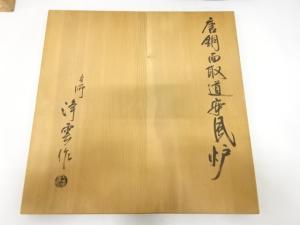 唐銅面取道安風炉
浄雲作